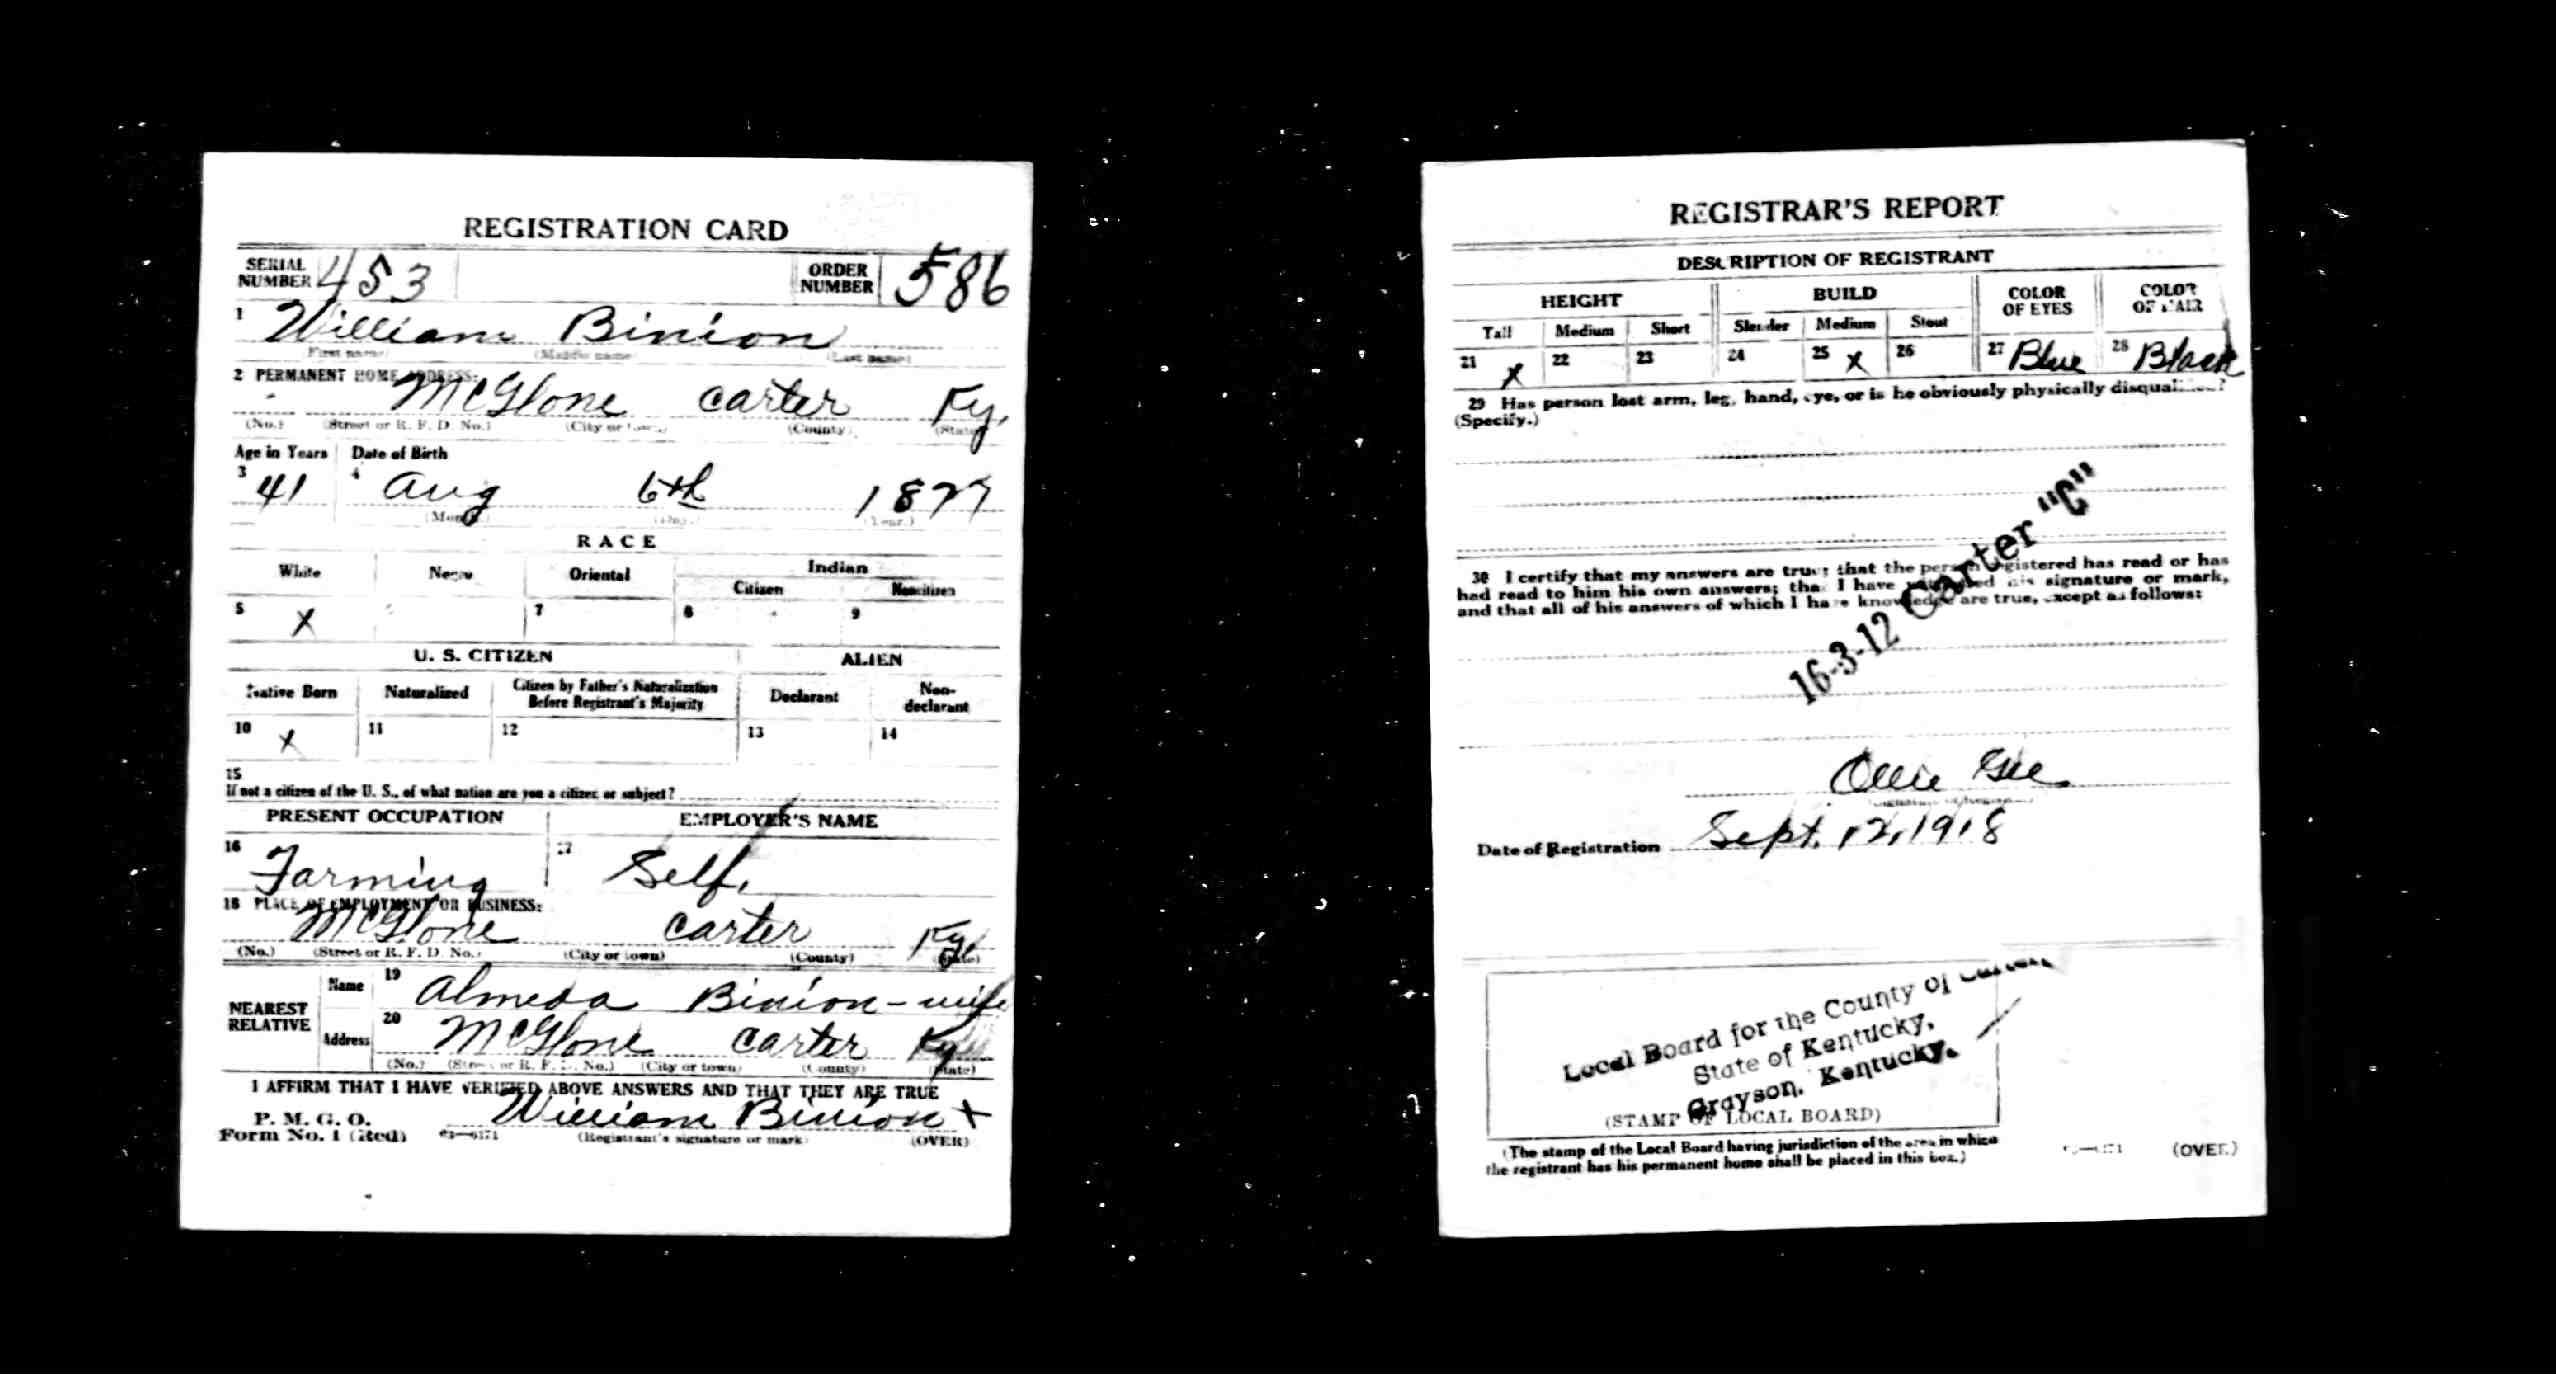 REGISTRATION CARD
SERIAL NUMBER 453 ORDER NUMBER 586
1 William Binion
(First name) (Middle name) (Last name)
2 PERMANENT HOME ADDRESS:
McGlone Carter Ky.
(No.) (Street or R. F. D. No.) (City or town) (County) (State)
Age in Years Date of Birth
3 41 4 Aug 6th 1877
(Month.) (Day.) (Year.)
RACE
White Negro Oriental Indian
Citizen Noncitizen
5 X 7 8 9
U. S. CITIZEN ALIEN
Native Born Naturalized Citizen by Father's Naturalization Before Registrant's Majority Declarant Non-declarant
10 X 11 12 13 14
15
If not a citizen of the U. S., of what nation are you a citizen or subject?
PRESENT OCCUPATION EMPLOYER'S NAME
16 Farming 17 Self.
18 PLACE OF EMPLOYMENT OR BUSINESS:
McGlone Carter Ky.
(No.) (Street or R. F. D. No.) (City or town) (County) (State)
NEAREST RELATIVE
Name 19 Almeda Binion - wife
Address 20 McGlone Carter Ky
(No.) (Street or R. F. D. No.) (City or town) (County) (State)
I AFFIRM THAT I HAVE VERIFIED ABOVE ANSWERS AND THAT THEY ARE TRUE
P. M. G. O.
Form No. 1 (Red) William Binion X
(Registrant's signature or mark) (OVER)
REGISTRAR'S REPORT
DESCRIPTION OF REGISTRANT
HEIGHT BUILD COLOR OF EYES COLOR OF HAIR
Tall Medium Short Slender Medium Stout
21 X 22 23 24 25 X 26 27 Blue 28 Black
29 Has person lost arm, leg, hand, eye, or is he obviously physically disqualified?
(Specify.)
30 I certify that my answers are true; that the person registered has read or has
had read to him his own answers; that I have witnessed his signature or mark,
and that all of his answers of which I have knowledge are true, except as follows:
16-3-12 Carter "C"
Ollie Gee
(Signature of Registrar)
Date of Registration Sept. 12, 1918
Local Board for the County of Carter
State of Kentucky,
Grayson, Kentucky.
(STAMP OF LOCAL BOARD)
(The stamp of the Local Board having jurisdiction of the area in which
the registrant has his permanent home shall be placed in this box.)
(OVER)